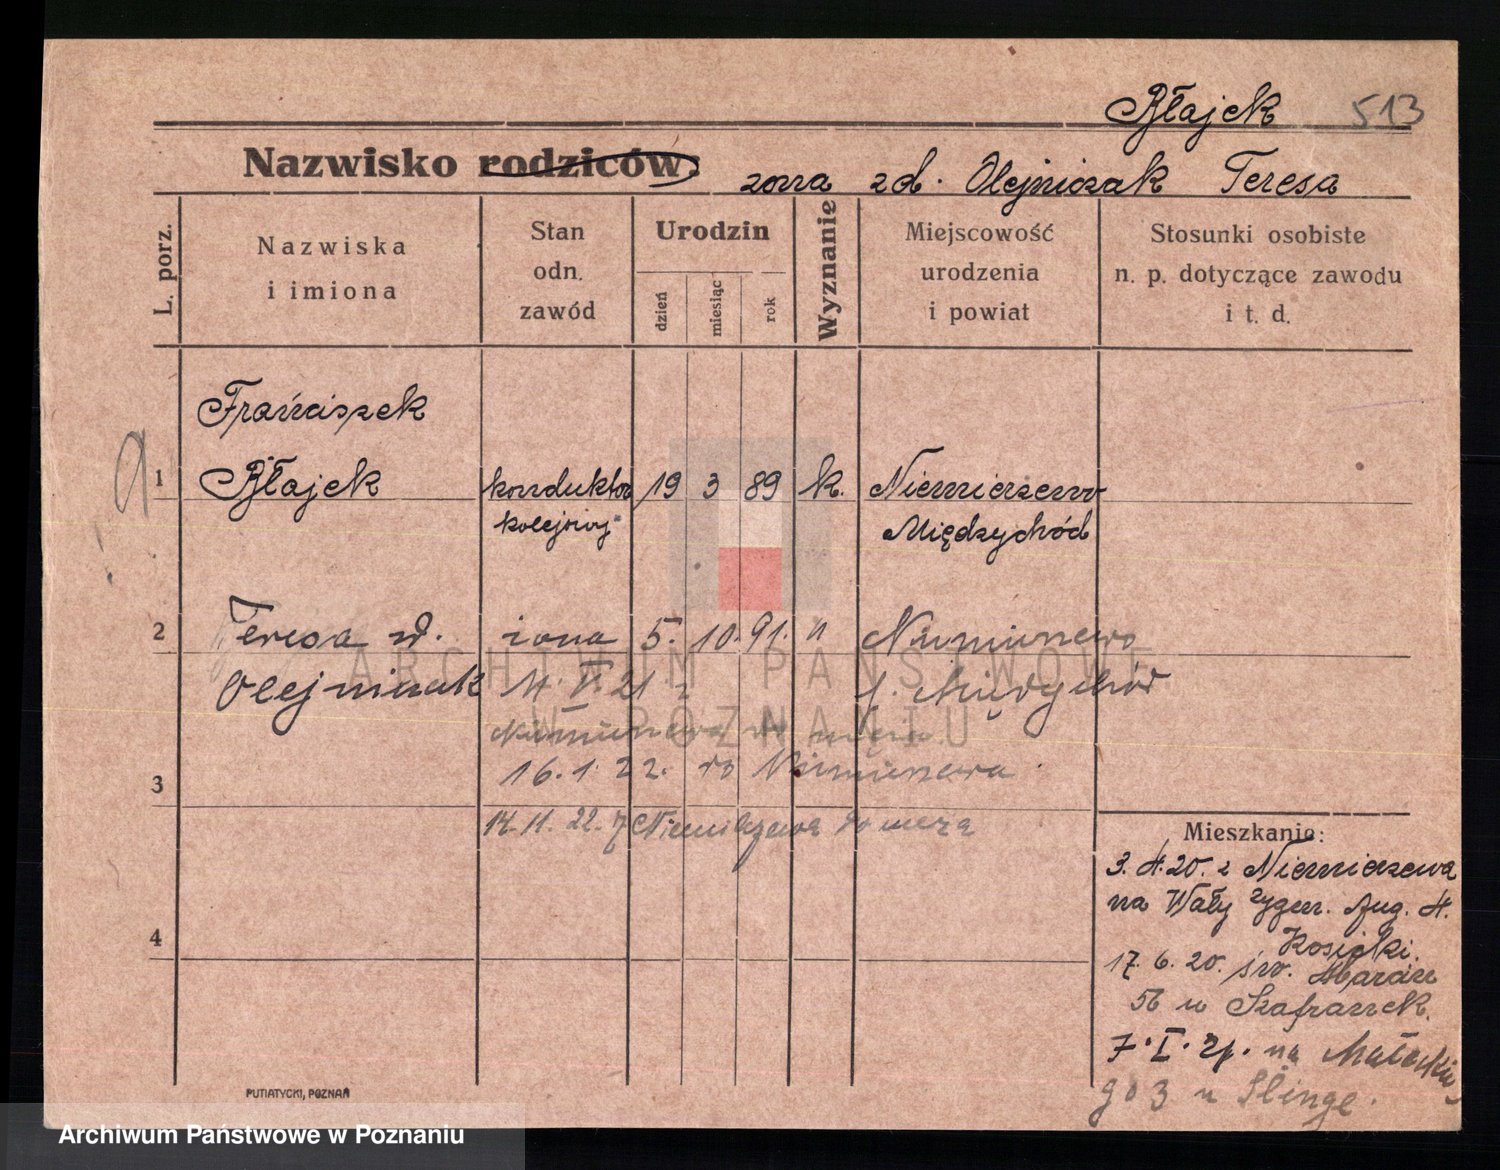 Błajek 513
Nazwisko rodziców:
żona zd. Olejniczak Teresa
L. porz.
Nazwiska
i imiona
Stan
odn.
zawód
Urodzin
dzień
miesiąc
rok
Wyznanie
Miejscowość
urodzenia
i powiat
Stosunki osobiste
n. p. dotyczące zawodu
i t. d.
Franciszek
1 Błajek konduktor 19 3 89 k. Niemierzewo
kolejowy Międzychód
2 Teresa d. żona 5. 10. 91. " Niemierzewo
Olejniczak 11. V. 21 z p. Międzychód
Niemierzewa do męża
16. 1. 22. do Niemierzewa
3
14. 11. 22. z Niemierzewa do męża
4
Mieszkanie:
3. 4. 20. z Niemierzewa
na Wały Zygm. Aug. 4.
Kosicki.
17. 6. 20. św. Marcin
56 u Szafranek.
7. I. 21. na Małeckie
go 3 u Slinge.
PUTIATYCKI, POZNAŃ
ARCHIWUM PAŃSTWOWE
W POZNANIU
Archiwum Państwowe w Poznaniu